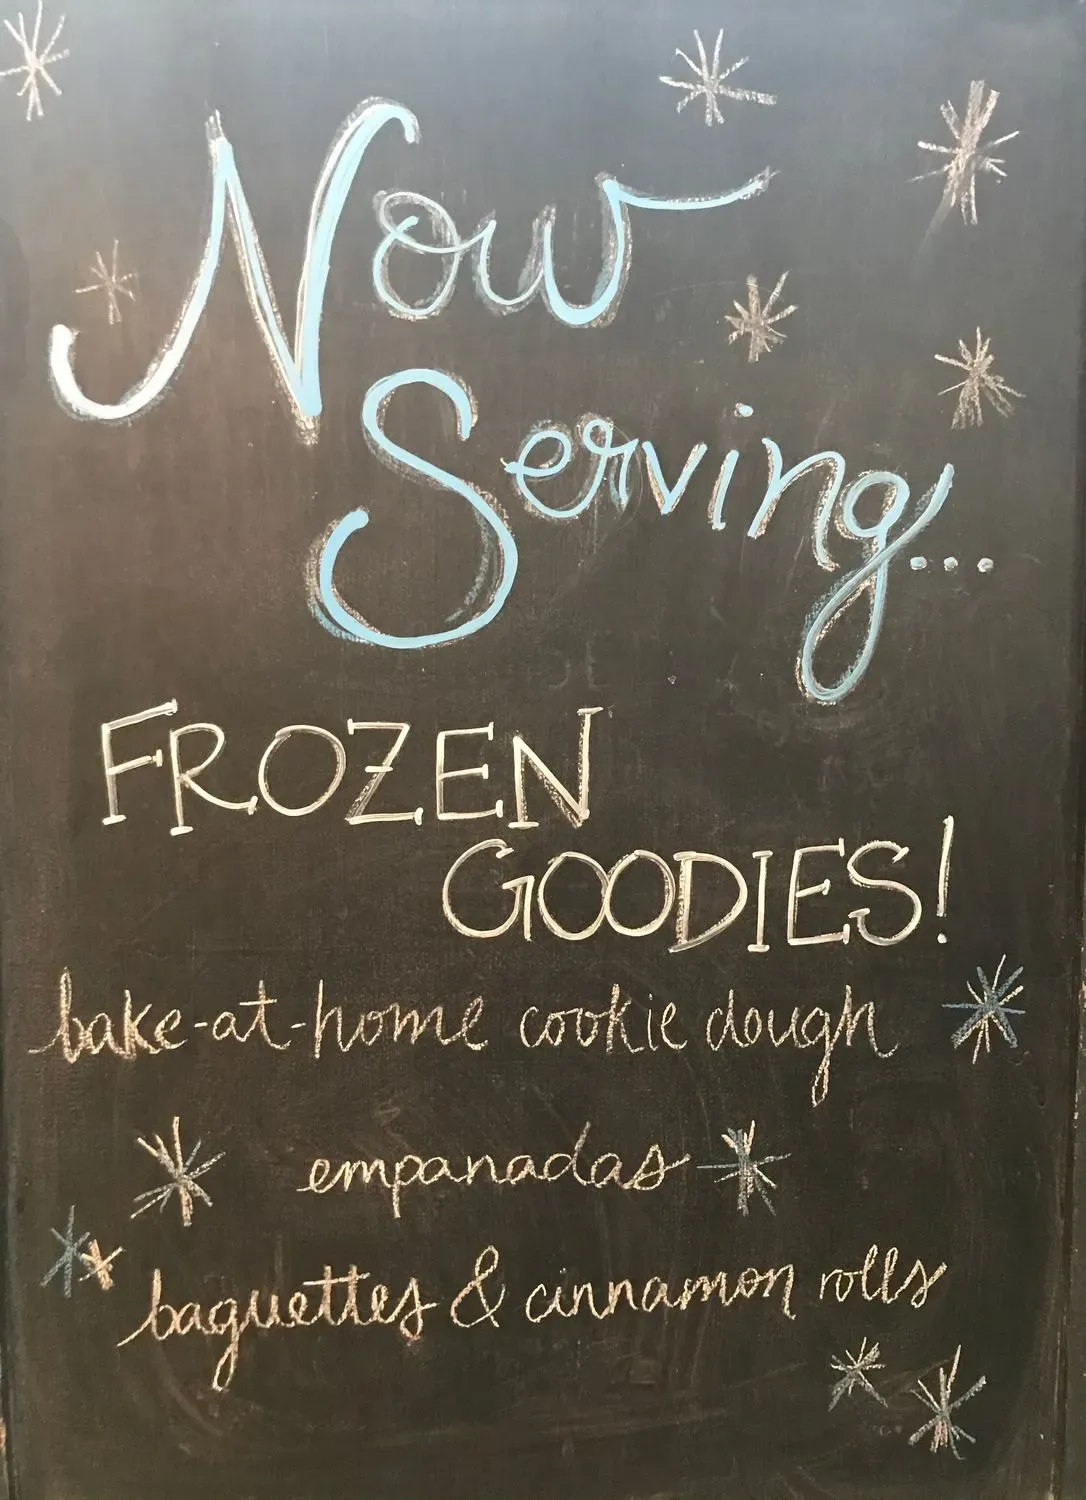 Now
Serving...
FROZEN
GOODIES!
bake-at-home cookie dough
empanadas
baguettes & cinnamon rolls